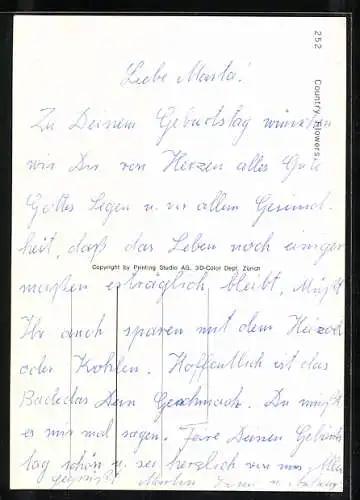 252 Country Flowers
Liebe Marta!
Zu Deinem Geburtstag wünschen
wir Dir von Herzen alles Gute
Gottes Segen u. vor allem Gesund-
heit, daß das Leben noch einiger
Copyright by Printing Studio AG, 3D-Color Dept. Zürich
maßen erträglich bleibt. Müßt
Ihr auch sparen mit dem Heizöl
oder Kohlen. Hoffentlich ist das
Dein Geschmack. Du mußt
es mir mal sagen. Feire Deinen Geburts
tag schön u. sei herzlich von uns Allen
gegrüßt